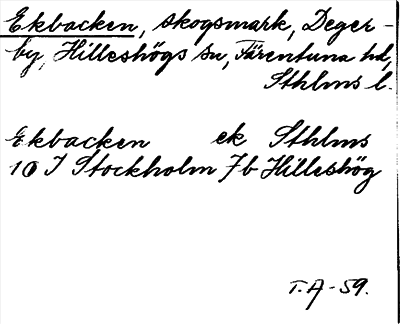 Ekbacken, skogsmark, Deger-
by, Hilleshögs sn, Färentuna hd,
Sthlms l.
Ekbacken ek Sthlms
10 I Stockholm 7b Hilleshög
T.A-59.